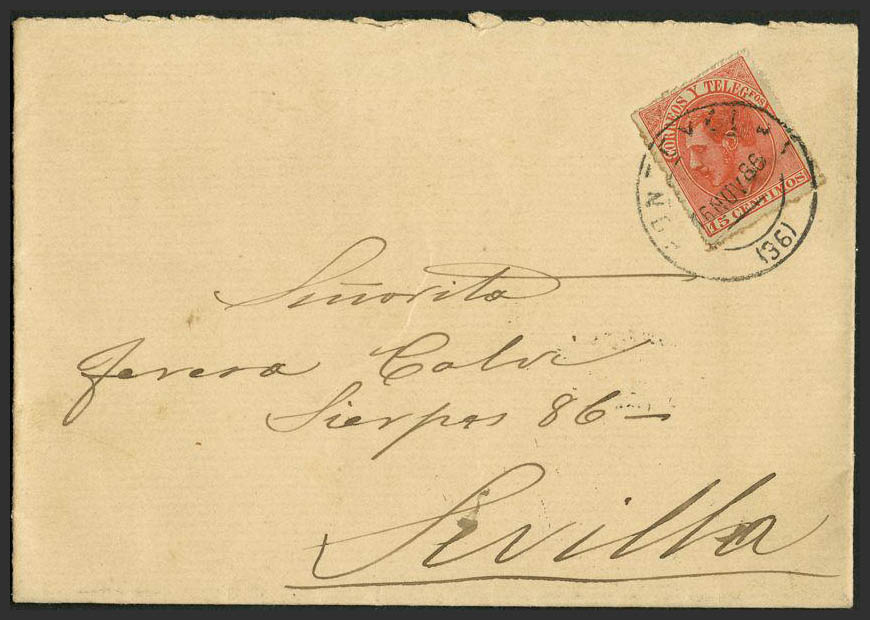 CORREOS Y TELEGFOS
6 NOV 86
15 CENTIMOS
(36)
Señorita
Teresa Calvi
Sierpes 86
Sevilla